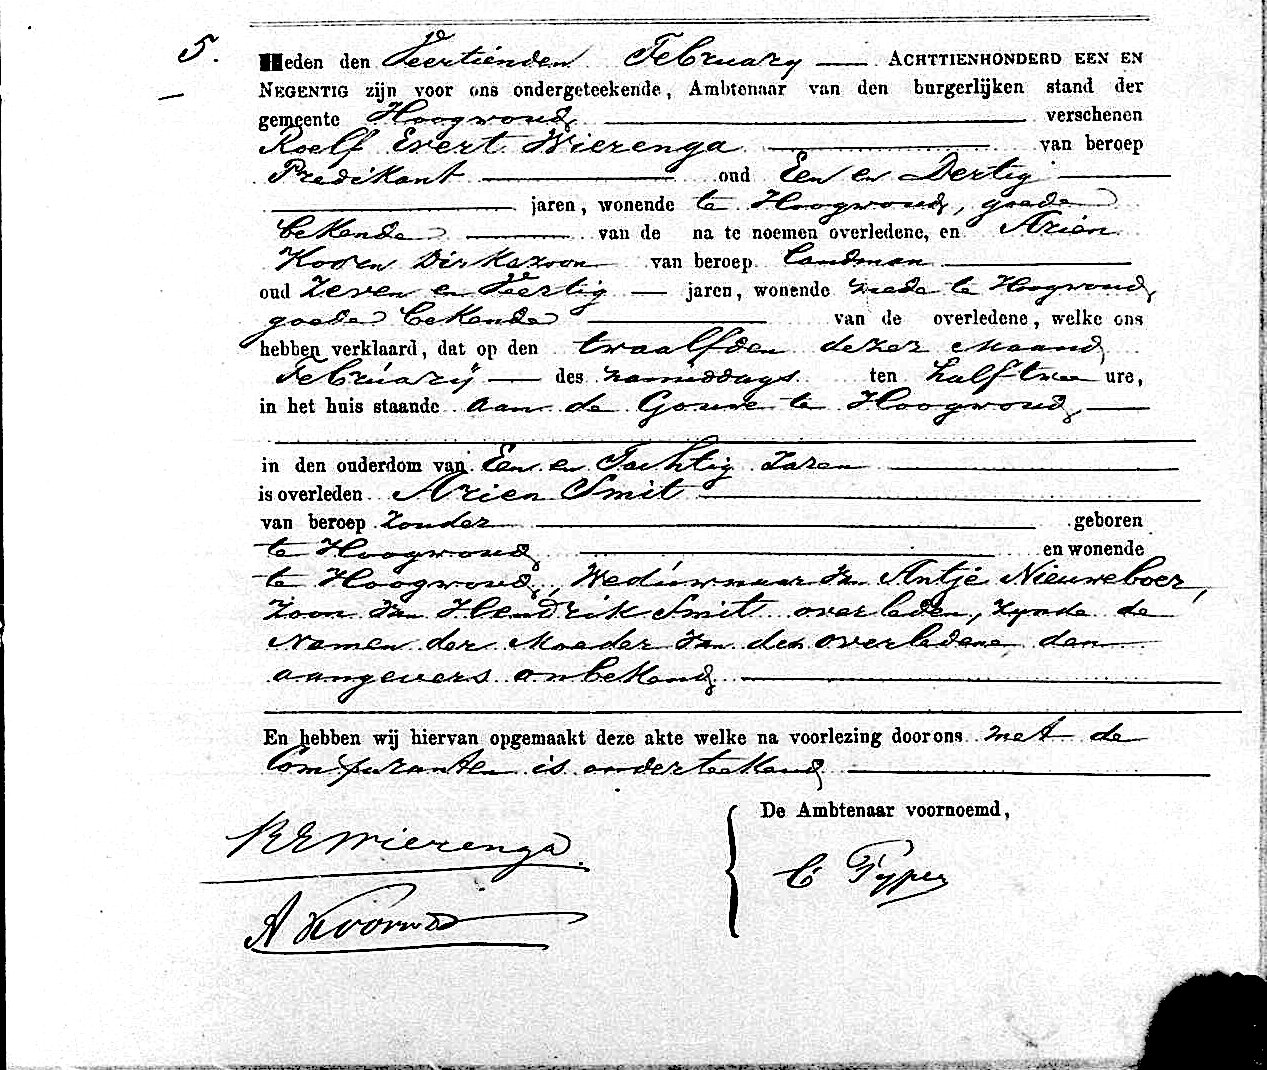 5.
Heden den Veertienden February ACHTTIENHONDERD EEN EN
NEGENTIG zijn voor ons ondergeteekende, Ambtenaar van den burgerlijken stand der
gemeente Hoogwoud verschenen
Roelf Evert Wierenga van beroep
Predikant oud Een en Dertig
jaren, wonende te Hoogwoud, goede
bekende van de na te noemen overledene, en Arien
Kooen Dirkszoon van beroep Landman
oud Zeven en Veertig jaren, wonende mede te Hoogwoud,
goede bekende van de overledene, welke ons
hebben verklaard, dat op den twaalfden dezer Maand
Februarij des namiddags ten half twee ure,
in het huis staande aan de Gouwe te Hoogwoud,
in den ouderdom van Een en Tachtig Jaren
is overleden Arien Smit
van beroep Zonder geboren
te Hoogwoud en wonende
te Hoogwoud, Weduwnaar van Antje Nieuweboer,
Zoon van Hendrik Smit overleden, zynde de
Namen der Moeder van den overledene, den
aangevers onbekend
En hebben wij hiervan opgemaakt deze akte welke na voorlezing door ons met de
Comparanten is onderteekend
De Ambtenaar voornoemd,
R E Wierenga.